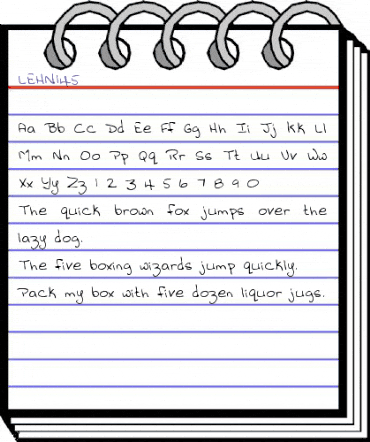 LEHN145
Aa Bb Cc Dd Ee Ff Gg Hh Ii Jj Kk Ll
Mm Nn Oo Pp Qq Rr Ss Tt Uu Vv Ww
Xx Yy Zz 1 2 3 4 5 6 7 8 9 0
The quick brown fox jumps over the
lazy dog.
The five boxing wizards jump quickly.
Pack my box with five dozen liquor jugs.